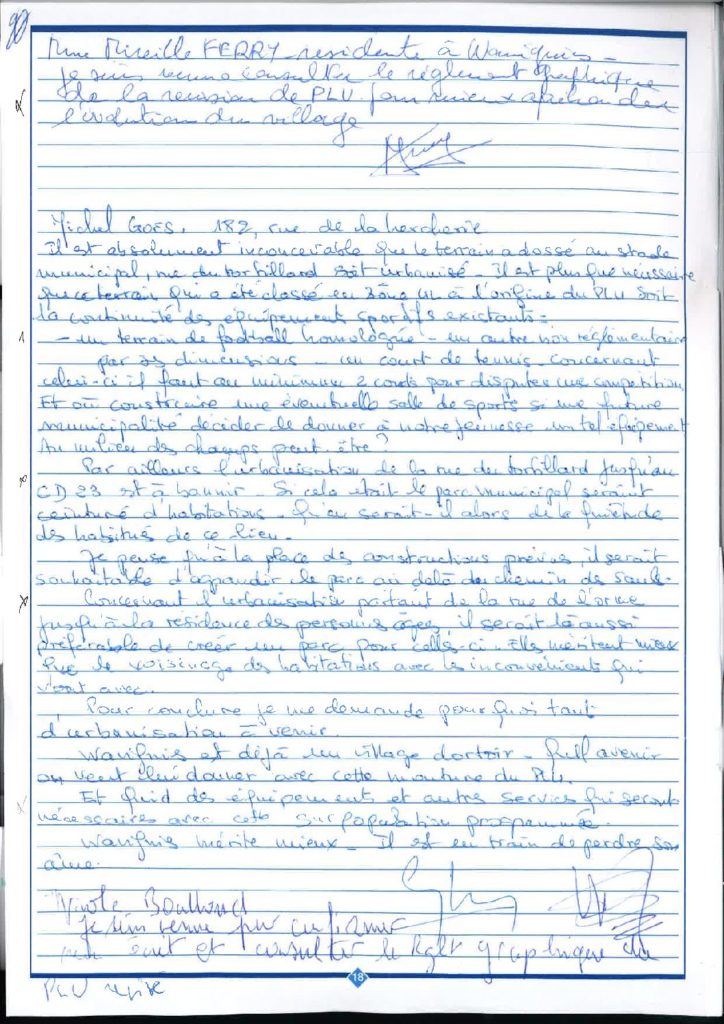 Mme Mireille FERRY résidente à Wavignies -
je suis venue consulter le règlement graphique
de la revision de PLU pour mieux apréhender
l'évolution du village
Michel GOES. 182, rue de la hercherie
Il est absolument inconcevable que le terrain adossé au stade
municipal, rue du tortillard soit urbanisé - Il est plus que nécessaire
que ce terrain qui a été classé en zône UL à l'origine du PLU soit
la continuité des équipements sportifs existants =
- un terrain de football homologué - un autre non réglementaire
par ses dimensions - un court de tennis - concernant
celui-ci il faut au minimum 2 courts pour disputer une compétition
Et où construire une éventuelle salle de sports si une future
municipalité décider de donner à notre jeunesse un tel équipement
Au milieu des champs peut-être ?
Par ailleurs l'urbanisation de la rue du tortillard jusqu'au
CD 23 est à bannir - Si cela était le parc municipal serait
ceinturé d'habitations - Qu'en serait-il alors de la quiétude
des habitués de ce lieu -
Je pense qu'à la place des constructions prévues, il serait
souhaitable d'agrandir le parc au delà du chemin de
Concernant l'urbanisation partant de la rue de l'orme
jusqu'à la résidence des personnes âgées, il serait là aussi
préférable de créer un parc pour celles-ci. Elles méritent mieux
que le voisinage des habitations avec les inconvénients qui
vont avec.
Pour conclure je me demande pourquoi tant
d'urbanisation à venir.
Wavignies est déjà un village dortoir - Quel avenir
on veut lui donner avec cette mouture du PLU.
Et quid des équipements et autres services qui seront
nécessaires avec cette surpopulation programmée.
Wavignies mérite mieux - Il est en train de perdre son
âme.
je suis venue pour confirmer
écrit et consulter le Rglt graphique du
18
PLU révisé